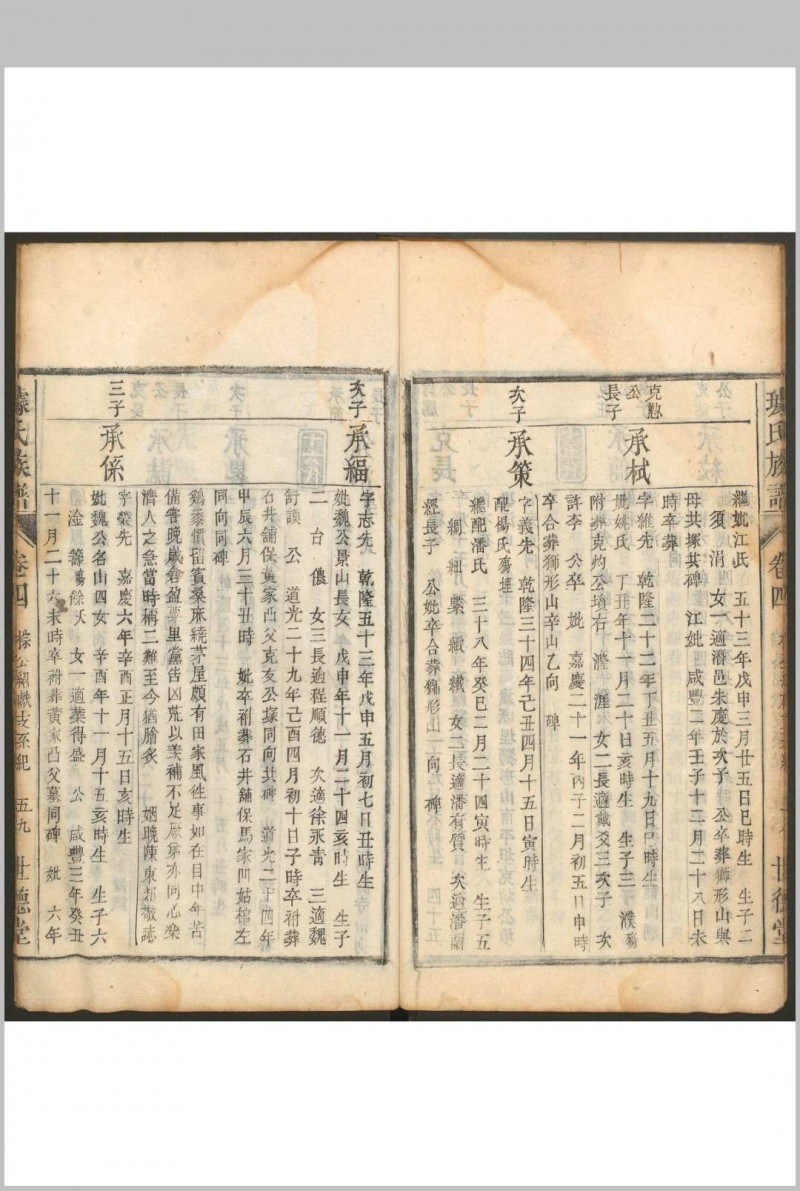 繼妣江氏　五十三年戊申三月廿五日巳時生　生子二
須　涓　女一適潛邑朱慶於次子　公卒葬獅形山與
母共塚共碑　江妣　咸豐二年壬子十二月二十八日未
時卒葬
克懃公長子
承栻
字維先　乾隆二十二年丁丑五月十九日巳時生
妣姚氏　丁丑年十一月二十日亥時生　生子三　濮殤
附葬克灼公墳右　澄　漄　女二長適戴爻三次子　次
許李　公卒　妣　嘉慶二十一年丙子二月初五日申時
卒合葬獅形山辛山乙向　碑
次子
承策
字義先　乾隆三十四年己丑四月十五日寅時生
配楊氏殤埋
繼配潘氏　三十八年癸巳二月二十四寅時生　生子五
綢　綑　縈　纖　纎　女二長適潘有質　次適潘蘭
經長子　公妣卒合葬獅形山　向　碑
次子
承緼
字志先　乾隆五十三年戊申五月初七日丑時生
妣魏公景山長女　戊申年十一月二十四亥時生　生子
二　台　儂　女三長適程順德　次適徐永青　三適魏
舒謨　公　道光二十九年己酉四月初十日子時卒祔葬
石井鋪保黃家凸父克亥公塚同向共碑　道光二十四年
甲辰六月三十丑時　妣卒祔葬石井鋪保馬家凹姑棺左
同向同碑
雞黍慣留賓桑麻繞茅屋頗有田家風徃事如在目中年苦
備嘗晚歲倉盈粟里黨告凶荒以業補不足厥弟亦同心樂
濟人之急當時稱二難至今猶膾炙　姻晚陳東都敬誌
三子
承係
字榮先　嘉慶六年辛酉正月十五日亥時生
妣魏公名山四女　辛酉年十一月十五亥時生　生子六
淦　籌殤餘夭　女一適葉得盛　公　咸豐三年癸丑
十一月二十六未時卒祔葬黃家凸父墓同碑　妣　六年
氏族譜　卷四　五九　世德堂